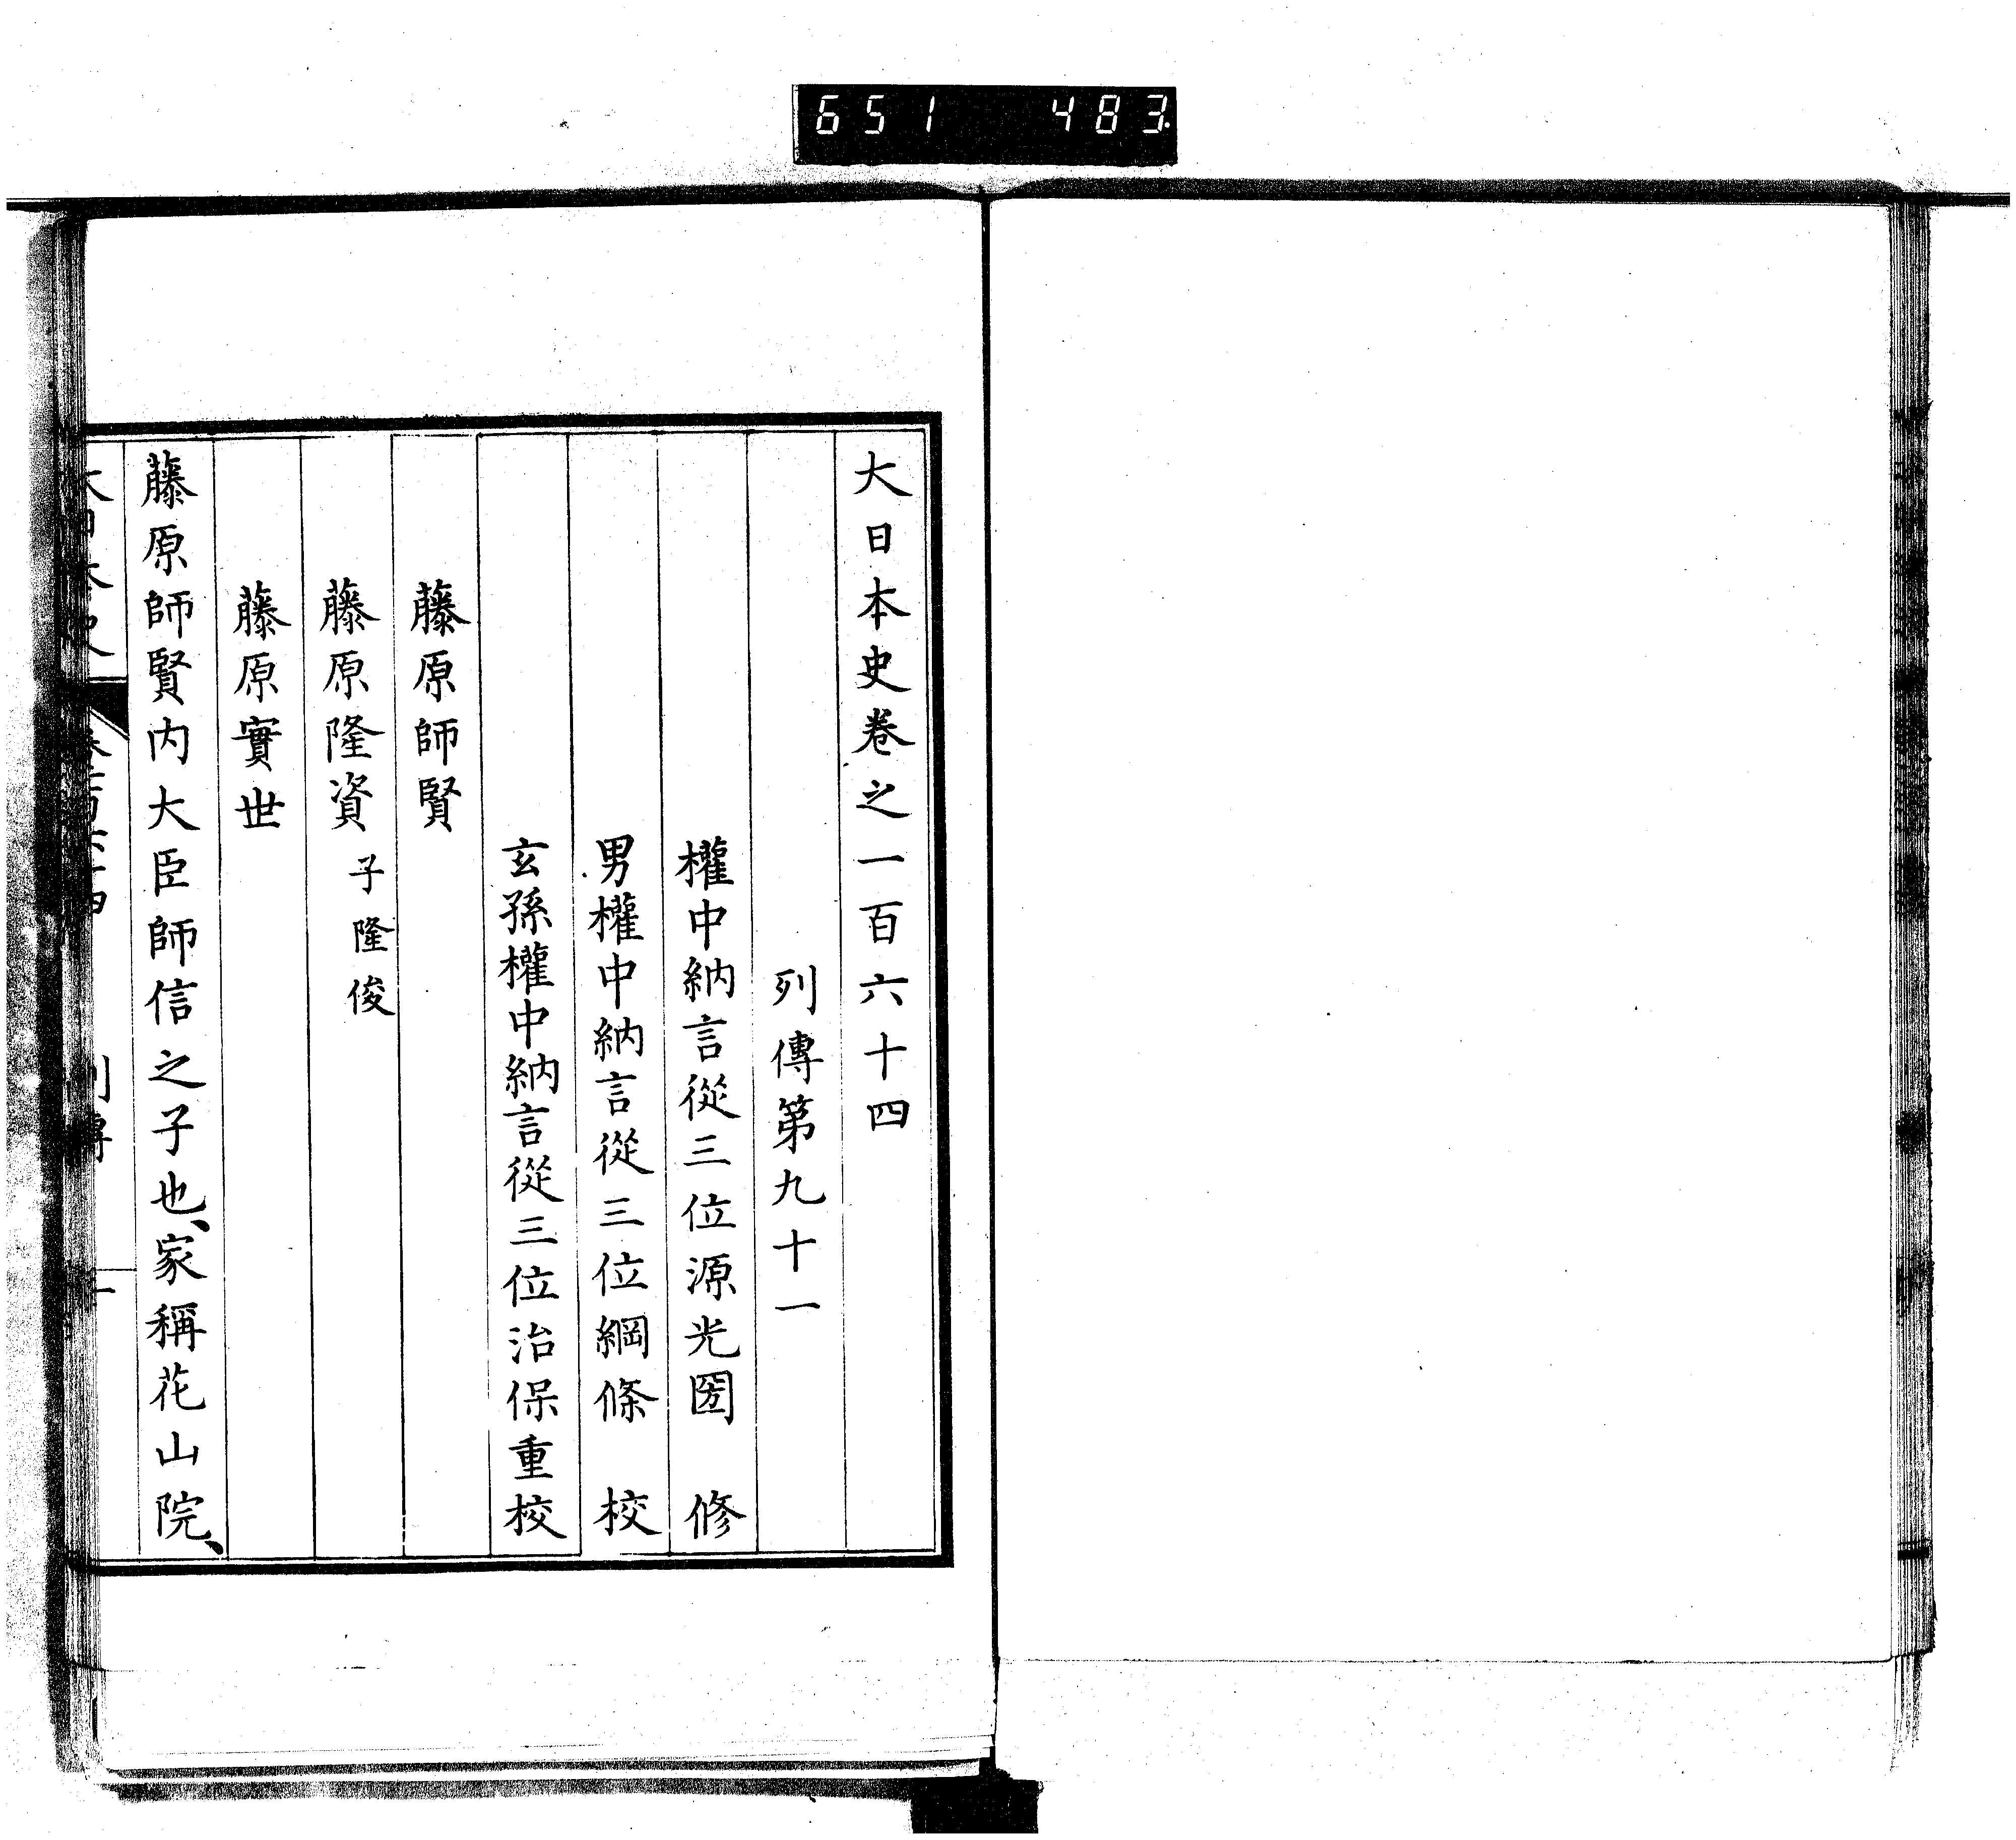 651 483
大日本史卷之一百六十四
列傳第九十一
權中納言從三位源光圀 修
男權中納言從三位綱條 校
玄孫權中納言從三位治保重校
藤原師賢
藤原隆資 子隆俊
藤原實世
藤原師賢内大臣師信之子也、家稱花山院、